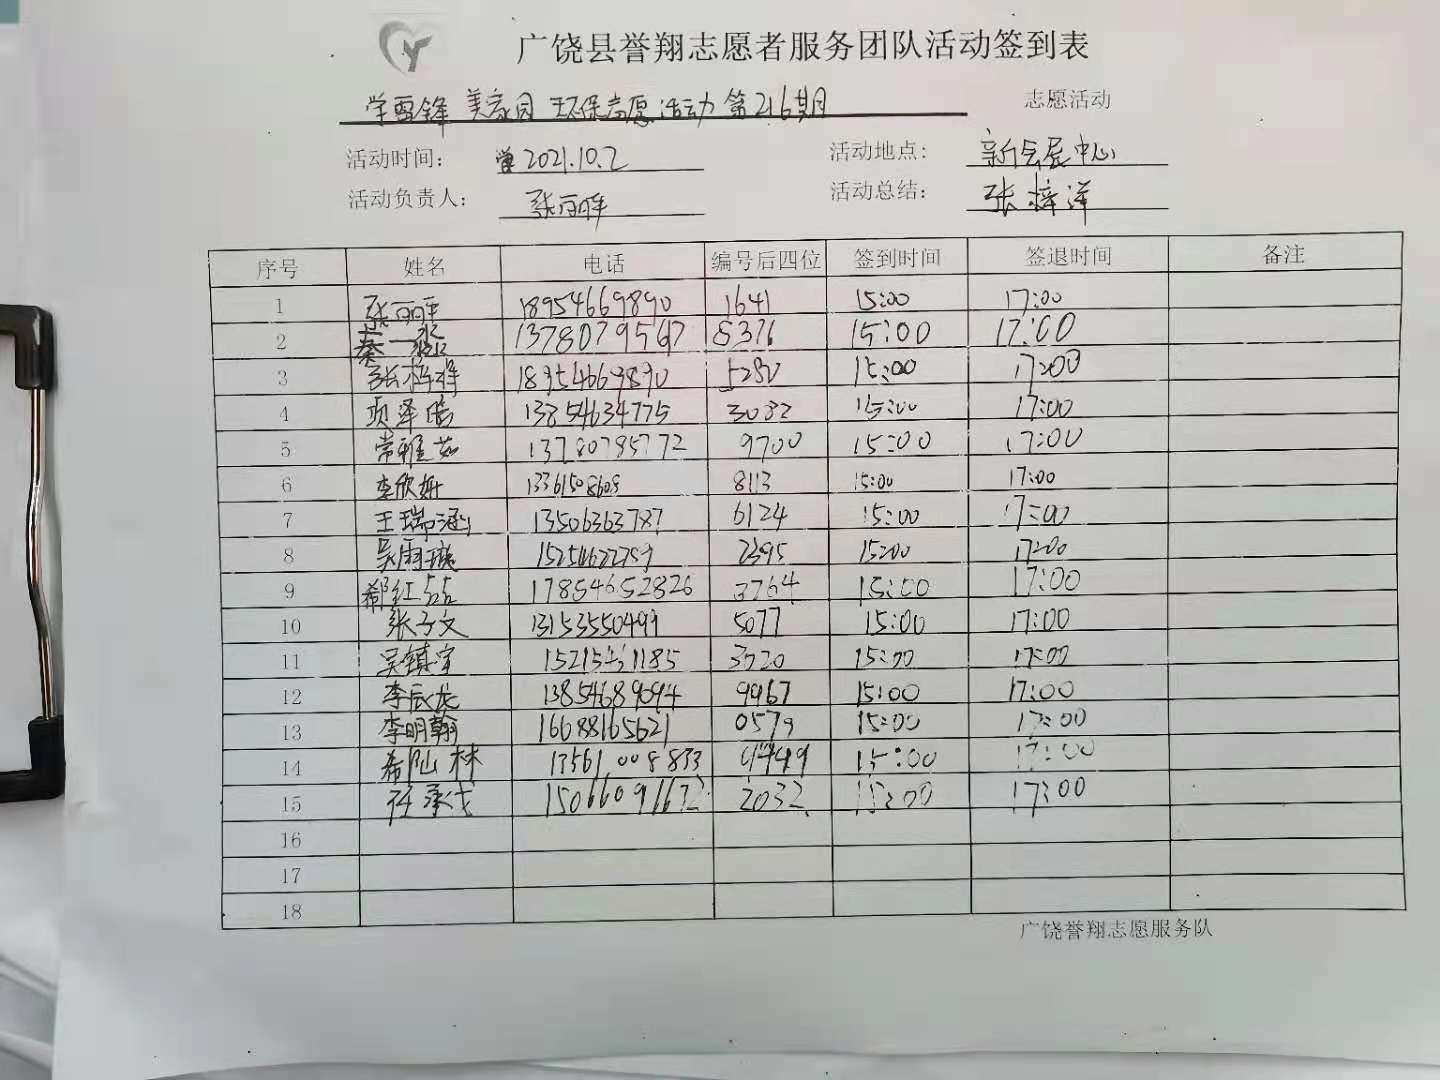 广饶县誉翔志愿者服务团队活动签到表
学雷锋 美家园 环保志愿活动 第216期 志愿活动
活动时间: 2021.10.2 活动地点: 新会展中心
活动负责人: 张丽晖 活动总结: 张梓洋
序号 姓名 电话 编号后四位 签到时间 签退时间 备注
1 张丽晖 18954669890 1641 15:00 17:00
2 秦一 13780795767 8376 15:00 17:00
3 张梓洋 18954669890 5280 15:00 17:00
4 项泽皓 13854634775 3082 15:00 17:00
5 常雅茹 13780785772 9700 15:00 17:00
6 李欣妍 13361508609 8113 15:00 17:00
7 王瑞涵 13506363787 6124 15:00 17:00
8 吴雨璇 2395 15:00 17:00
9 郗红喆 17854652826 3764 15:00 17:00
10 张子文 13153550499 5077 15:00 17:00
11 吴镇宇 3720 15:00 17:00
12 李辰龙 13854689094 9967 15:00 17:00
13 李明翰 16688165621 0579 15:00 17:00
14 林 13561008833 9449 15:00 17:00
15 任承戈 15066091632 2032 15:00 17:00
16
17
18
广饶誉翔志愿服务队